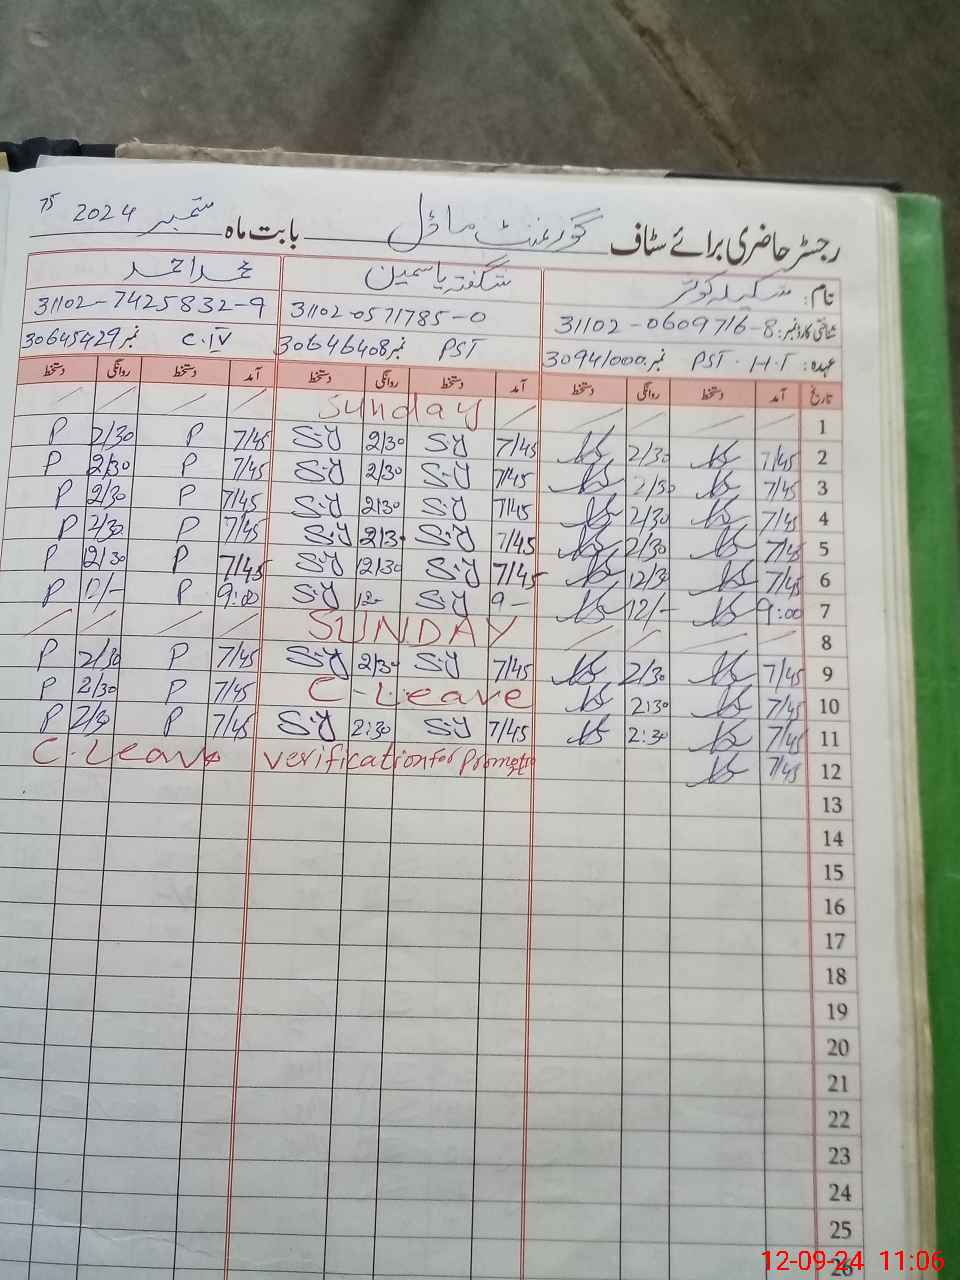 رجسٹر حاضری برائے سٹاف گورنمنٹ ماڈل بابت ماہ ستمبر 2024 75
نام: شکیلہ کوثر شگفتہ یاسمین محمد احمد
شناختی کارڈ نمبر: 31102-0609716-8 31102-0571785-0 31102-7425832-9
عہدہ: PST. H.T نمبر 30941000 PST نمبر 30646408 C.IV نمبر 30645429
تاریخ آمد دستخط روانگی دستخط آمد دستخط روانگی دستخط آمد دستخط روانگی دستخط
1 Sunday
2 7/45 2/30 7/45 S.Y 2/30 S.Y 7/45 P 2/30 P
3 7/45 2/30 7/45 S.Y 2/30 S.Y 7/45 P 2/30 P
4 7/45 2/30 7/45 S.Y 2/30 S.Y 7/45 P 2/30 P
5 7/45 2/30 7/45 S.Y 2/3 S.Y 7/45 P 2/30 P
6 7/45 12/3 7/45 S.Y 12/30 S.Y 7/45 P 12/30 P
7 9:00 12/- 9- S.Y 12- S.Y 9:00 P 12/- P
8 SUNDAY
9 7/45 2/30 7/45 S.Y 2/30 S.Y 7/45 P 2/30 P
10 7/45 2:30 C-Leave 7/45 P 2/30 P
11 7/45 2:30 7/45 S.Y 2:30 S.Y 7/45 P 2/30 P
12 7/45 verification for C.Leave
13
14
15
16
17
18
19
20
21
22
23
24
25
26
12-09-24 11:06